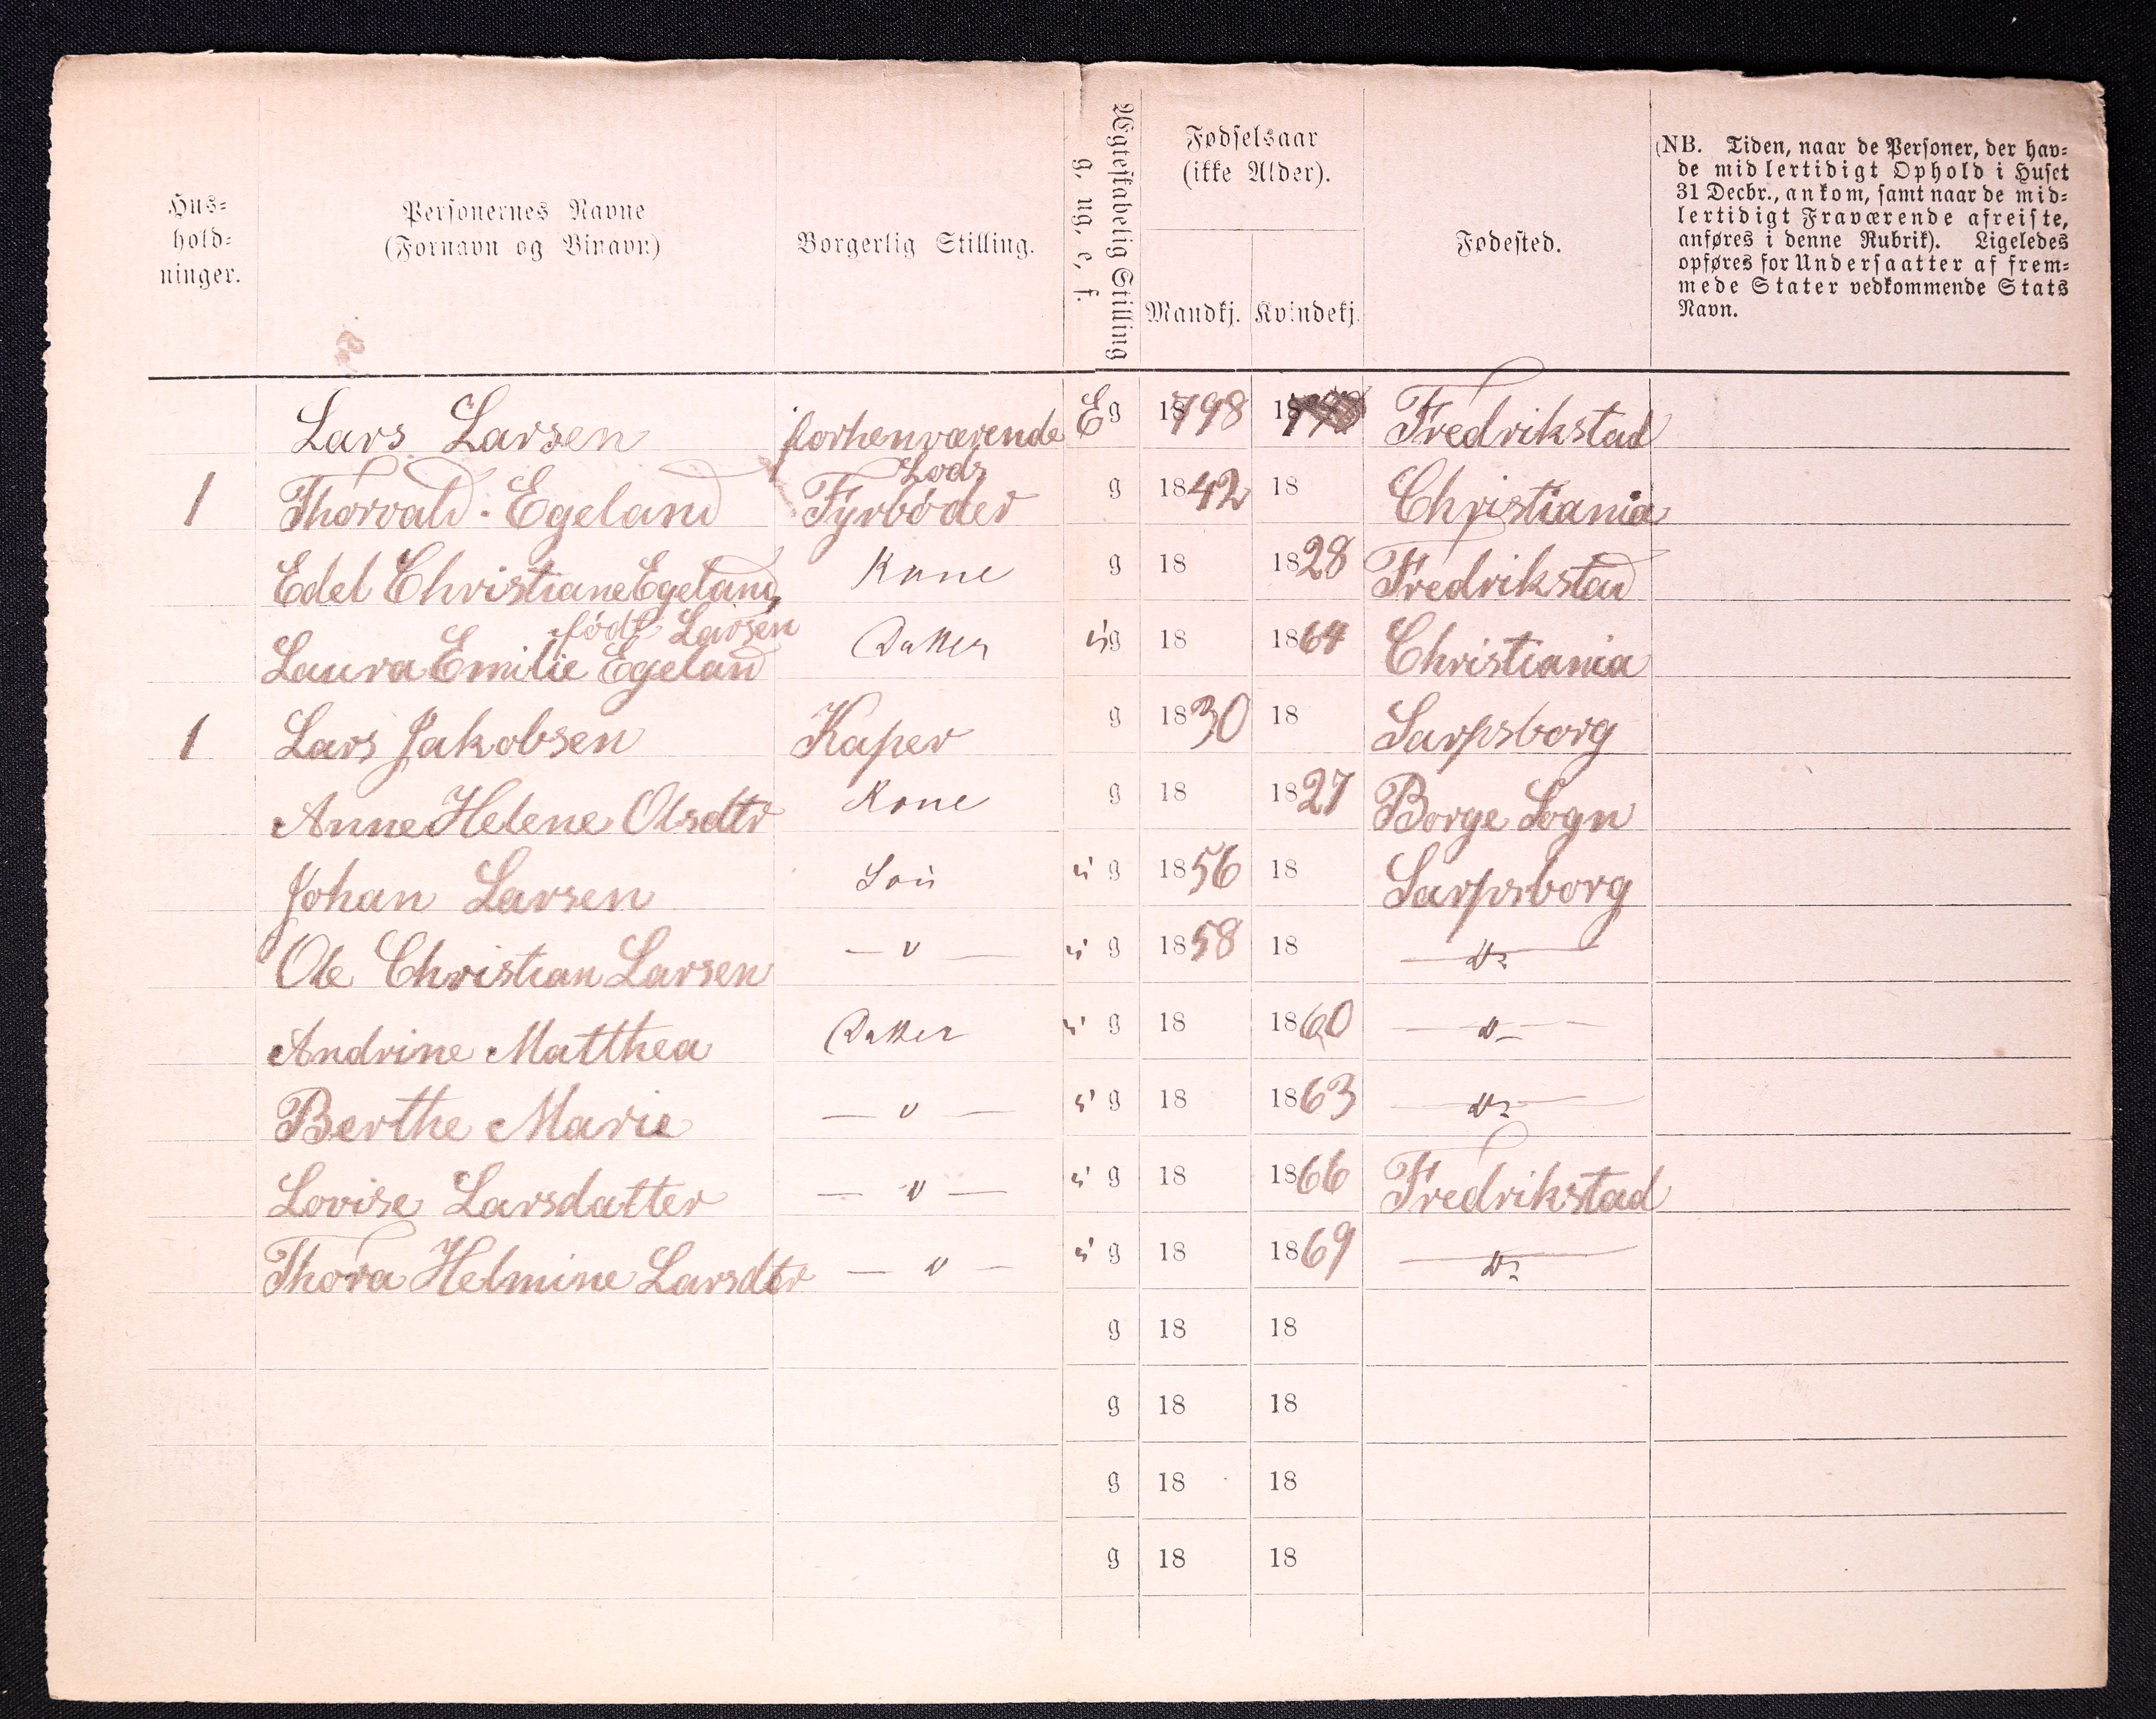 Hus=
hold=
ninger.
Personernes Navne
(Fornavn og Vinavn)
Borgerlig Stilling.
Ægteskabelig Stilling
g, ug, e, f.
Fødselsaar
(ikke Alder).
Mandkj. Kvindekj.
Fødested.
(NB. Tiden, naar de Personer, der hav=
de midlertidigt Ophold i Huset
31 Decbr., ankom, samt naar de mid=
lertidigt Fraværende afreiste,
anføres i denne Rubrik). Ligeledes
opføres for Undersaatter af frem=
mede Stater vedkommende Stats
Navn.
Lars Larsen forhenværende E g 1798 Fredrikstad
Lods
1 Thorvald Egeland Fyrbøder g 1842 18 Christiania
Edel Christiane Egeland, Kone g 18 1828 Fredrikstad
født Larsen
Laura Emilie Egeland Datter ug 18 1864 Christiania
1 Lars Jakobsen Kaper g 1830 18 Sarpsborg
Anne Helene Olsdtr Kone g 18 1827 Borge Sogn
Johan Larsen Søn u g 1856 18 Sarpsborg
Ole Christian Larsen — " — u g 1858 18 — " —
Andrine Matthea Datter u g 18 1860 — " —
Berthe Marie — " — u g 18 1863 — " —
Lovise Larsdatter — " — u g 18 1866 Fredrikstad
Thora Helmine Larsdtr — " — u g 18 1869 — " —
g 18 18
g 18 18
g 18 18
g 18 18